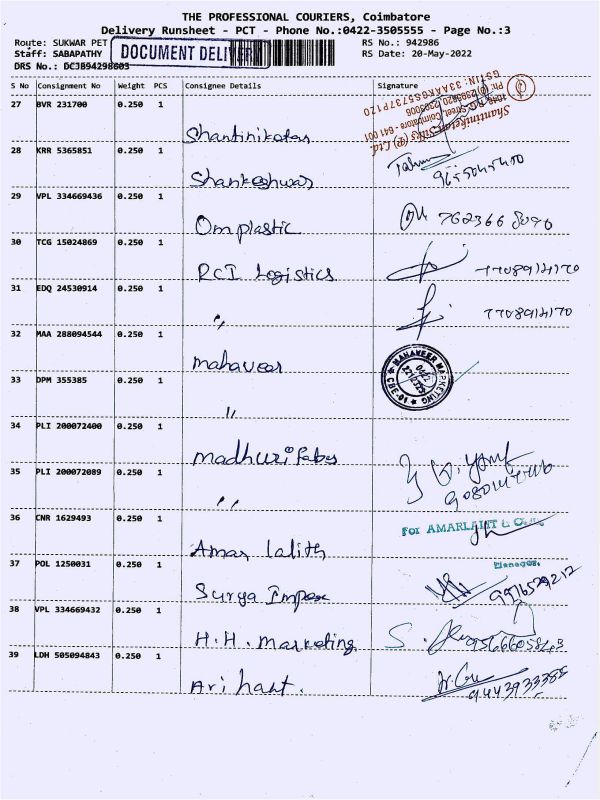 THE PROFESSIONAL COURIERS, Coimbatore
Delivery Runsheet - PCT - Phone No.:0422-3505555 - Page No.:3
Route: SUKWAR PET
RS No.: 942986
Staff: SABAPATHY
DOCUMENT DELIVERY
RS Date: 20-May-2022
DRS No.: DCJB94298603
S No Consignment No Weight PCS Consignee Details Signature
27 BVR 231700 0.250 1 Shantiniketan
Shantiniketan Silks (P) Ltd.
Street, Coimbatore - 641 001
GSTIN: 33AAKCS5737P1Z0
28 KRR 5365851 0.250 1 Shankeshwar
29 VPL 334669436 0.250 1 Om plastic
30 TCG 15024869 0.250 1 RCI Logistics 7708912170
31 EDQ 24530914 0.250 1 〃 7708912170
32 MAA 288094544 0.250 1 mahaveer
MAHAVEER MARKETING
CBE-01
33 DPM 355385 0.250 1 〃
34 PLI 200072400 0.250 1 madhuri fabs
35 PLI 200072089 0.250 1 〃
36 CNR 1629493 0.250 1 Amar lalith
For AMARLALIT & CO.
Manager.
37 POL 1250031 0.250 1 Surya Impex
38 VPL 334669432 0.250 1 H.H. marketing
39 LDH 505094843 0.250 1 Arihant. 9443933355